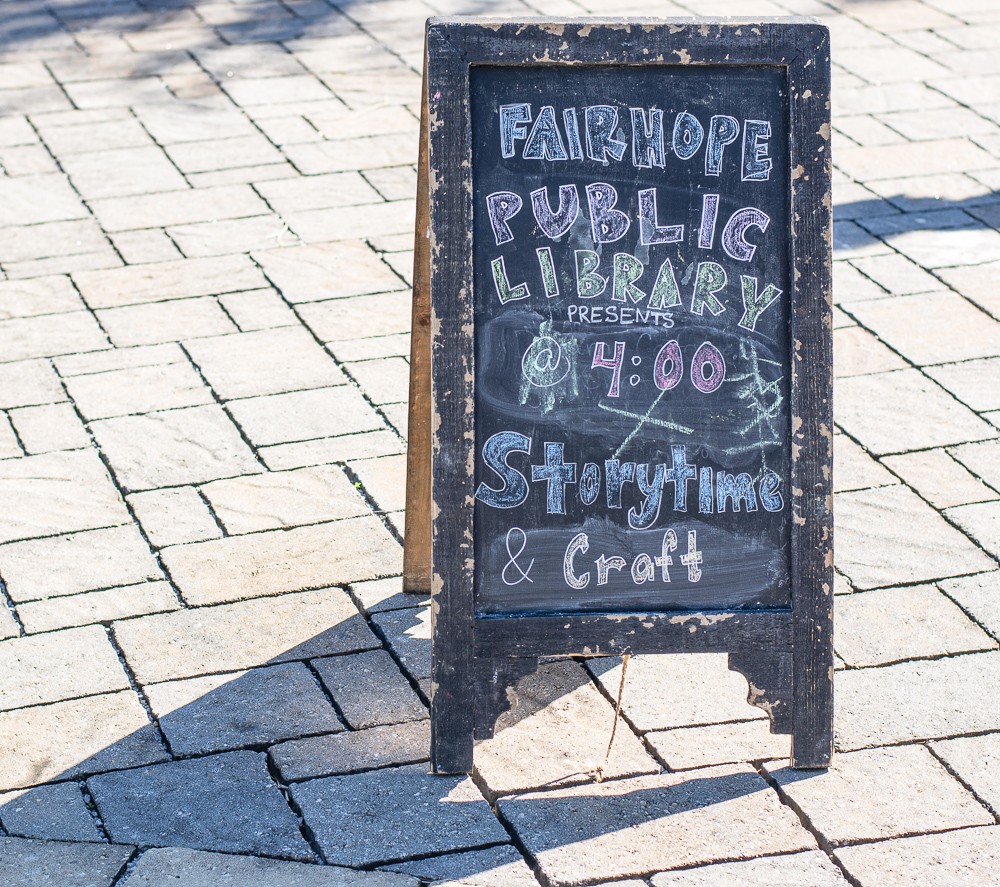 FAIRHOPE
PUBLIC
LIBRARY
PRESENTS
@ 4:00
Storytime
& Craft